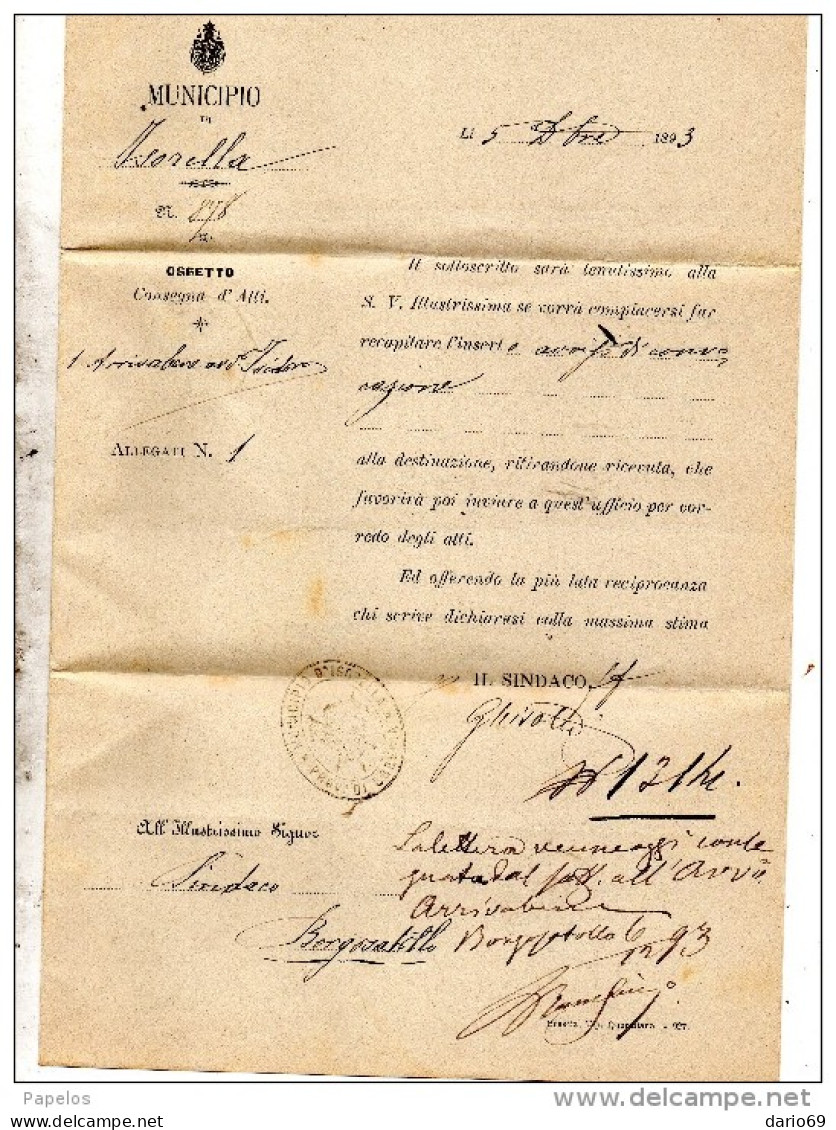 MUNICIPIO
DI
Isorella
Lì 5 Xbre 1893
N. 878
OGGETTO
Consegna d'Atti.
1 Arrivabene avv. Isidoro
ALLEGATI N. 1
Il sottoscritto sarà tenutissimo alla
S. V. Illustrissima se vorrà compiacersi far
recapitare l'inserto avviso di convo
cazione
alla destinazione, ritirandone ricevuta, che
favorirà poi inviare a quest'ufficio per cor-
redo degli atti.
Ed offerendo la più lata reciprocanza
chi scrive dichiarasi colla massima stima
IL SINDACO, ff
Ghirotti
MUNICIPIO D'ISORELLA
N 1214.
All'Illustrissimo Signor
Sindaco
Borgosatollo
La lettera venne oggi conse
gnata dal sott. all'Avv.
Arrivabene
Borgosatollo 6/12 93
Brescia, Tip.
Papelos
delcampe.net
dario69